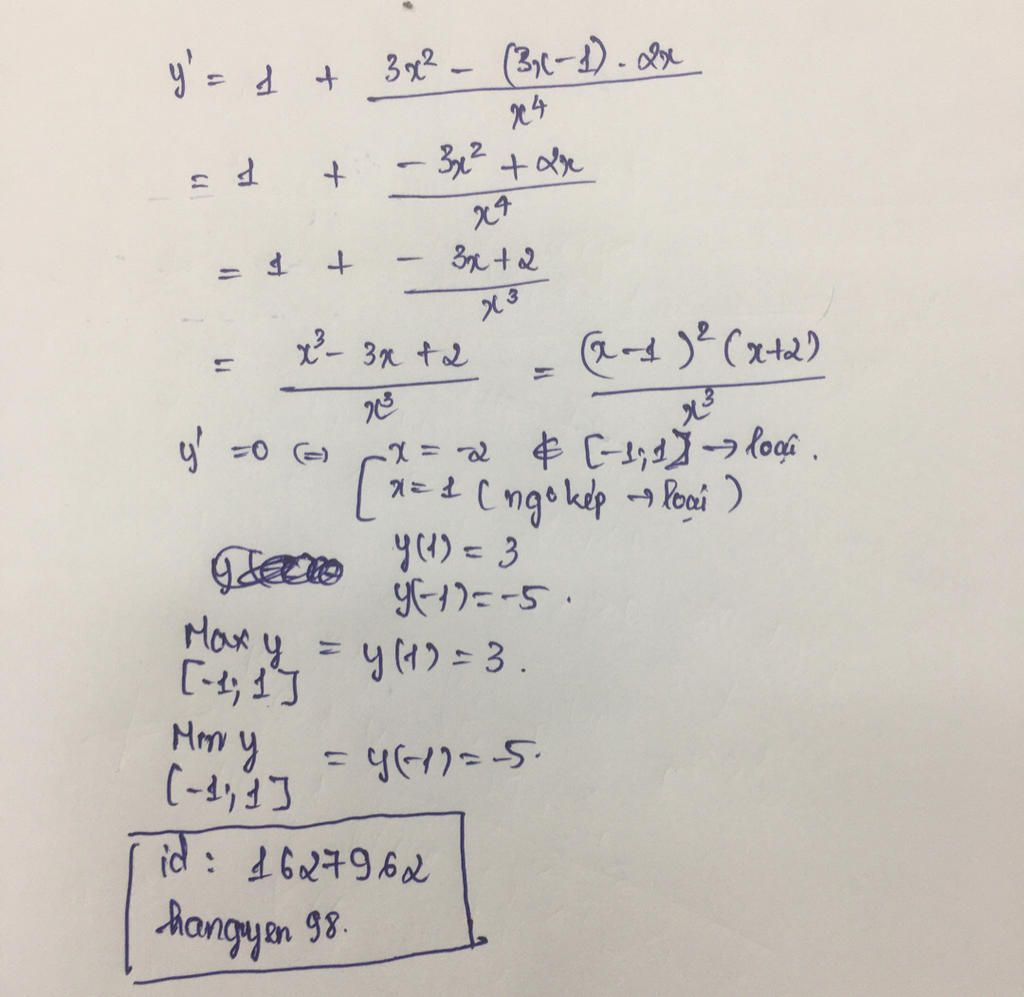 y' = 1 + (3x² - (3x-1) . 2x) / x⁴
= 1 + (-3x² + 2x) / x⁴
= 1 + (-3x+2) / x³
= (x³ - 3x + 2) / x³ = ((x-1)² (x+2)) / x³
y' = 0 ⇔ [ x = -2 ∉ [-1;1] → loại.
x = 1 (ngo kép → loại)
y(1) = 3
y(-1) = -5.
Max y = y(1) = 3.
[-1; 1]
Min y = y(-1) = -5.
[-1; 1]
id : 1627962
hanguyen 98.